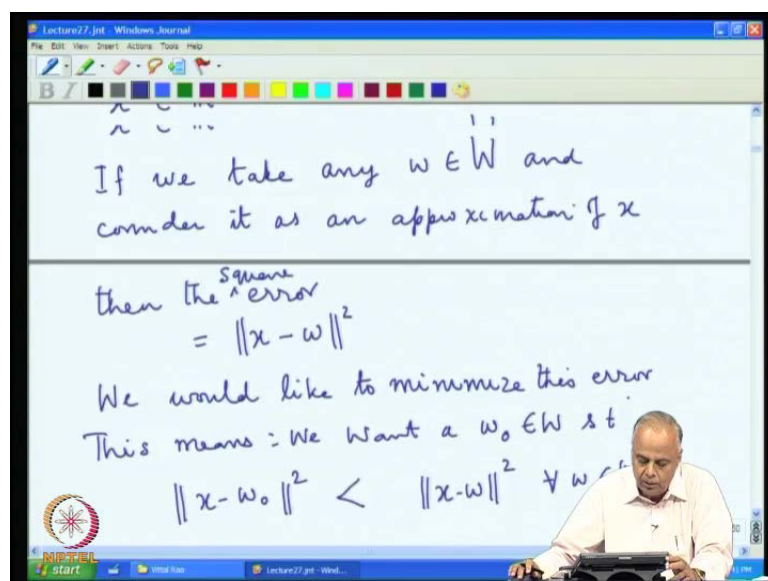 Lecture27.jnt - Windows Journal
File Edit View Insert Actions Tools Help
B I
If we take any w ∈ W and
consider it as an approximation of x
then the square error
= ‖x - w‖²
We would like to minimize this error
This means : We want a w₀ ∈ W s t
‖x - w₀‖² < ‖x-w‖² ∀ w ∈
NPTEL
start Vittal Rao Lecture27.jnt - Wind...